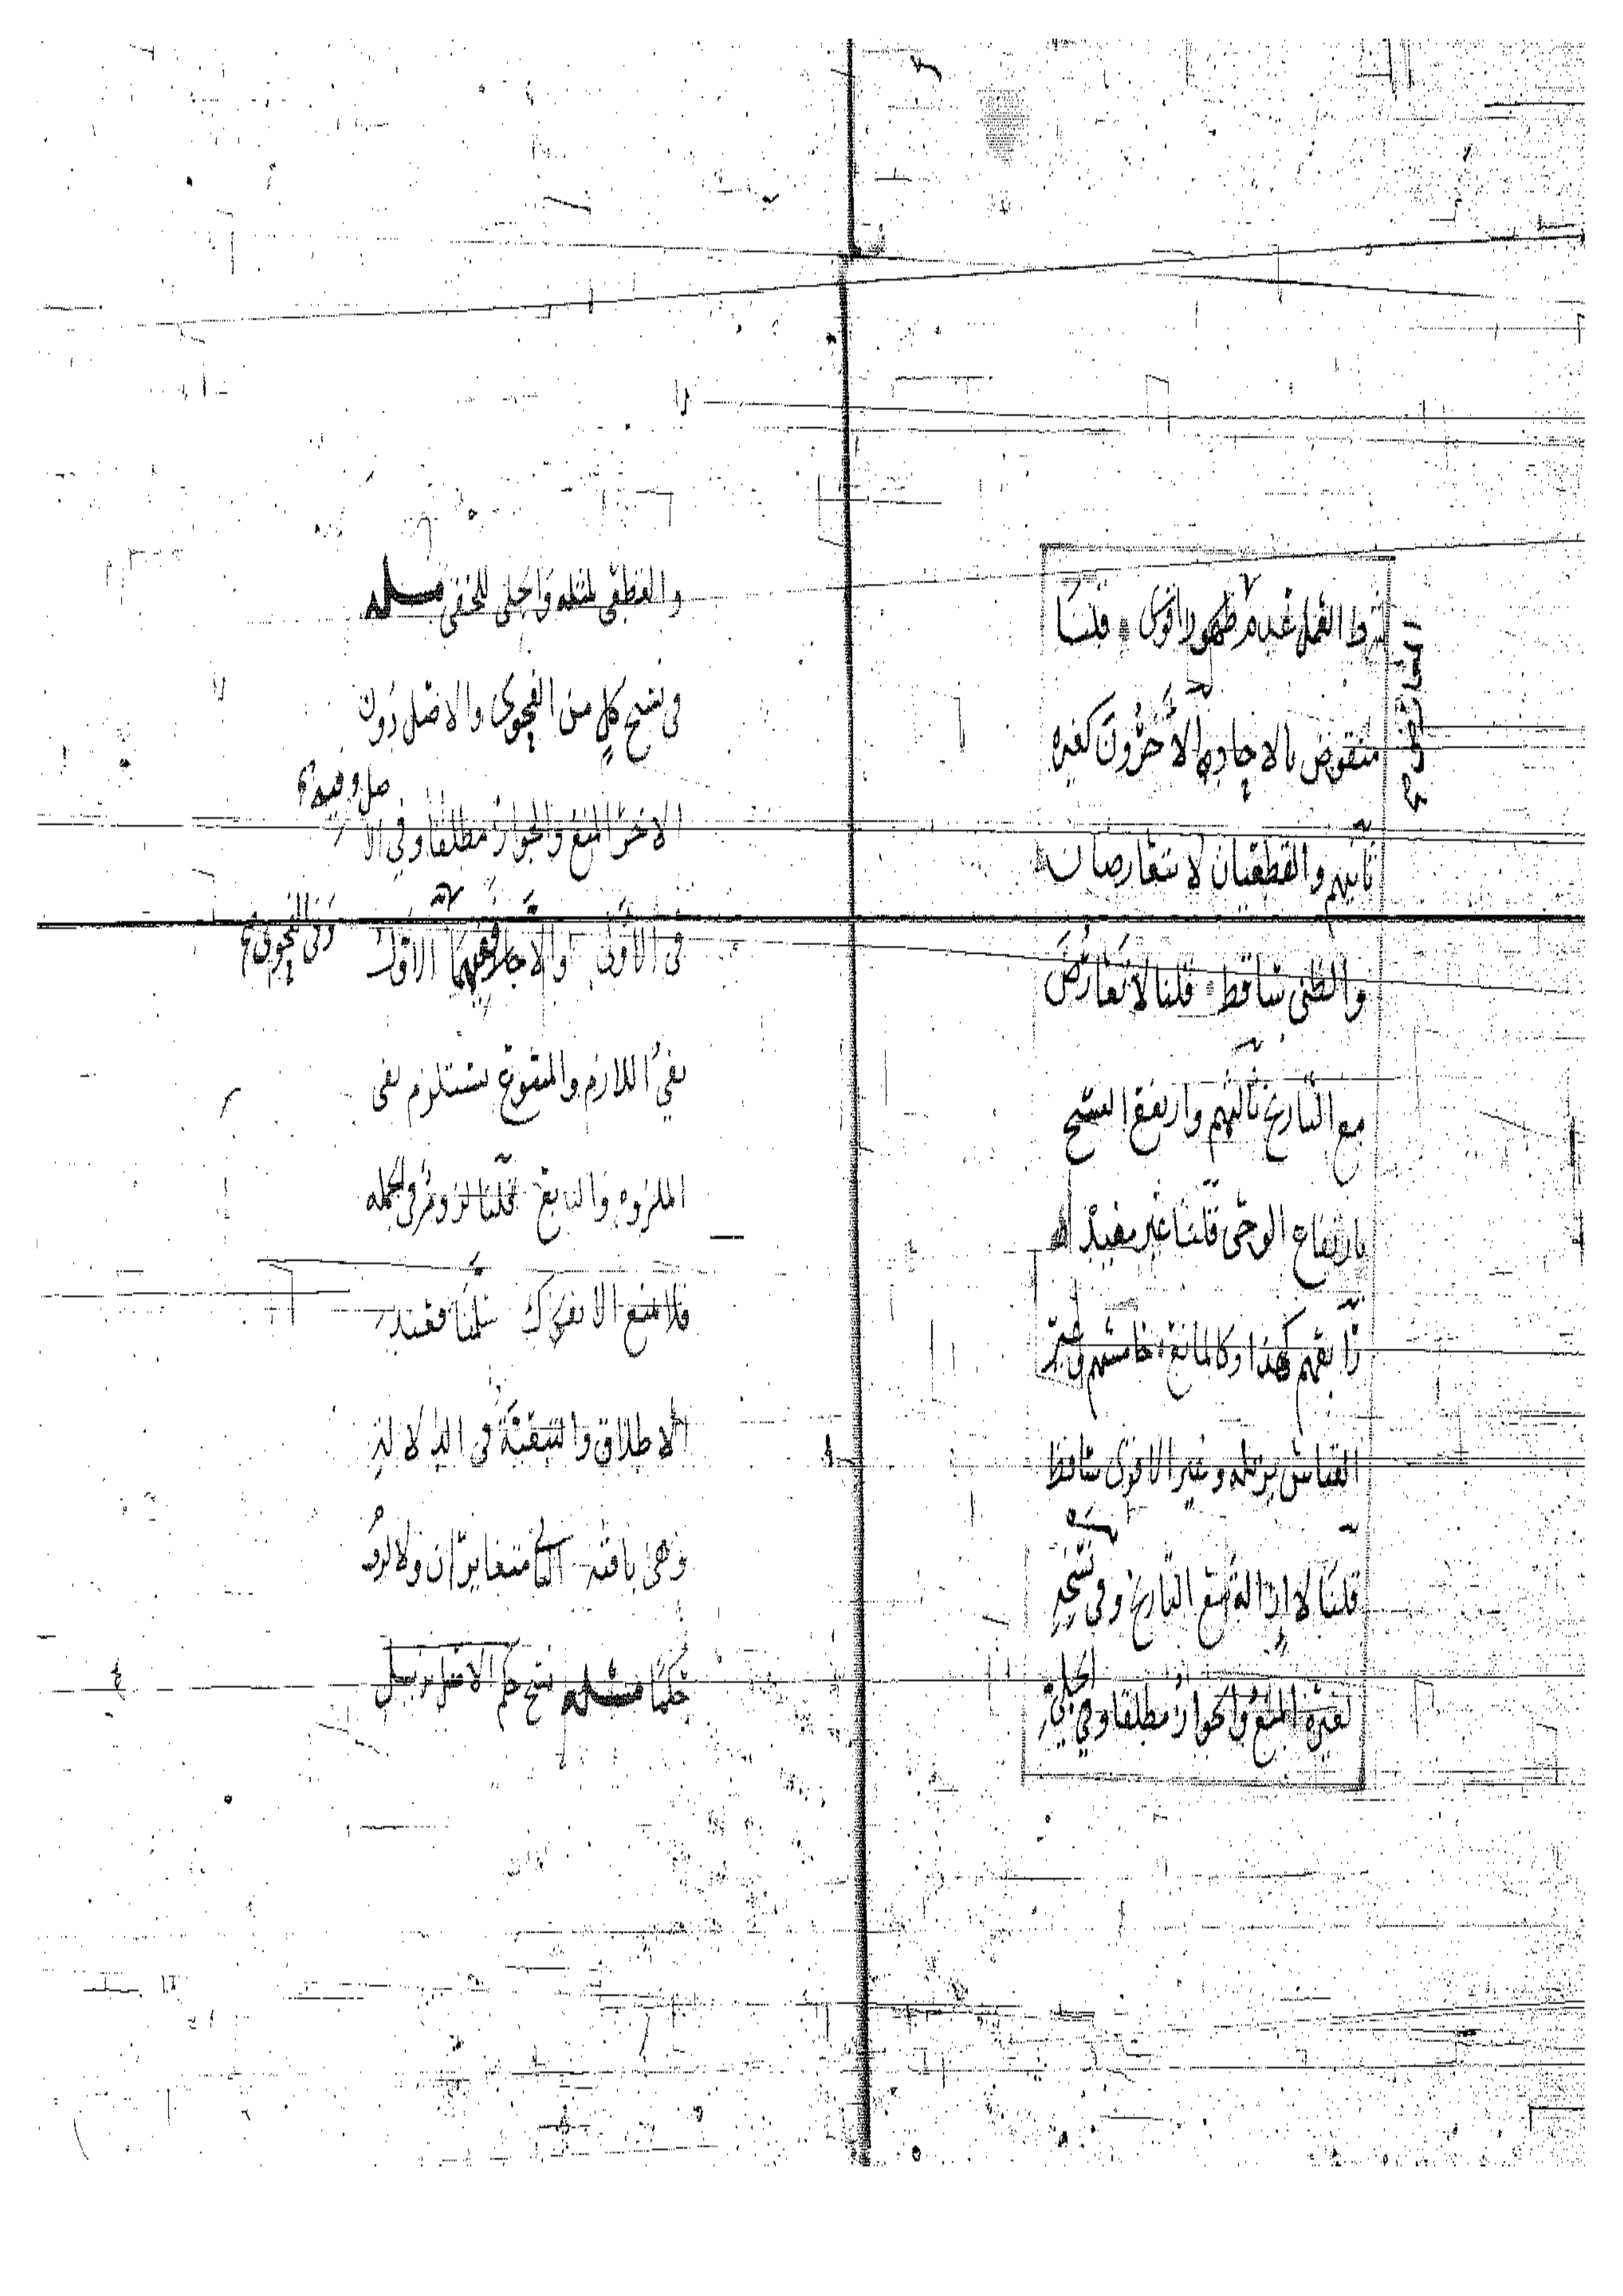 شرط العمل عدم ظهور اقوى قلنا
المعارض
منقوض بالاحاد الاخرون كغيره
ثانيهم والقطعيان لا يتعارضان
والظني ساقط قلنا لا تعارض
مع التاريخ ثالثهم وارتفع النسخ
بارتفاع الوحي قلنا غير مفيد
رابعهم كهذا وكالمانع خامسهم
القياس يزيله وغير الاقوى ساقط
قلنا لا ازالة مع التاريخ وفي نسخه
لغيره المنع والجواز مطلقا وفي
الجلي
والقطعي لمثله والجلي للخفي مسله
في نسخ كل من الفحوى والاصل دون
الاخر المنع والجواز مطلقا وفي الا
صل وفيه
في الاولى الاول وفي الفحوى
نفي اللازم والمتبوع يستلزم نفي
الملزوم والتابع قلنا لزوم في الجملة
فلا منع الا بغير ذلك سلمنا فعند
الاطلاق والتبعية في الدلالة
وهي باقية متغايران ولا لزوم
حكما مسله نسخ حكم الاصل يزيل